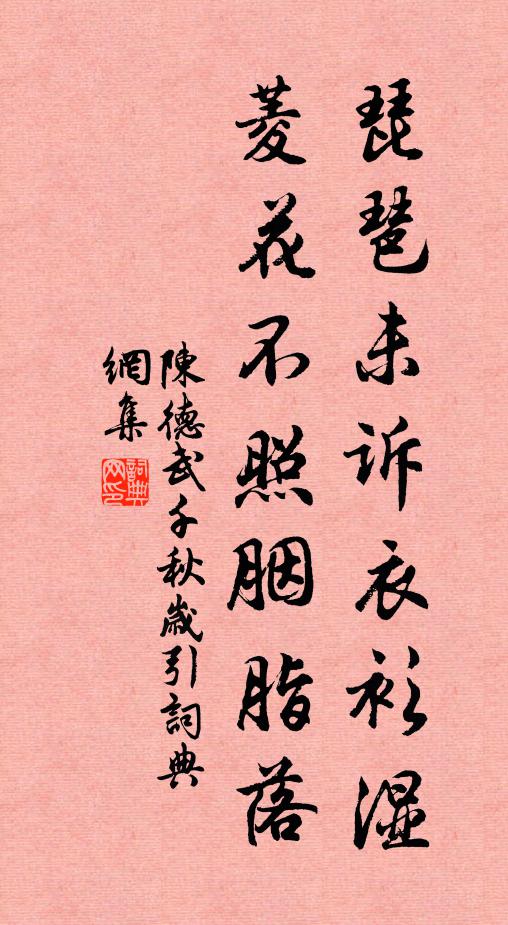 琵琶未诉衣衫湿
菱花不照胭脂落
陳德武千秋歲引詞典
網集
詞典
网印